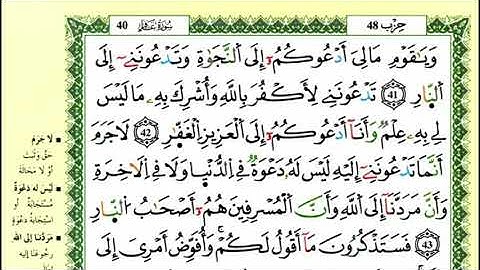 حِزْب 48
سُورَةُ غَافِر
40
وَيَٰقَوْمِ مَا لِيَ أَدْعُوكُمُۥٓ إِلَى اَ۬لنَّجَوٰةِ وَتَدْعُونَنِےٓ إِلَى
اَ۬لنّ۪ارِ 41 تَدْعُونَنِے لِأَكْفُرَ بِاللَّهِ وَأُشْرِكَ بِهِۦ مَا لَيْسَ
لِے بِهِۦ عِلْمٌ وَأَنَآ أَدْعُوكُمُۥٓ إِلَى اَ۬لْعَزِيزِ اِ۬لْغَفّٰ۪رِ 42 لَا جَرَمَ
أَنَّمَا تَدْعُونَنِےٓ إِلَيْهِ لَيْسَ لَهُۥ دَعْوَةٌ فِے اِ۬لدُّنْيَا وَلَا فِے اِ۬لَاخِرَةِ
وَأَنَّ مَرَدَّنَآ إَِلَى اَ۬للَّهِ وَأَنَّ اَ۬لْمُسْرِفِينَ هُمُۥٓ أَصْحَٰبُ اُ۬لنّ۪ارِ
43 فَسَتَذْكُرُونَ مَآ أَقُولُ لَكُمْ وَأُفَوِّضُ أَمْرِيَ إِلَى
لَا جَرَمَ
حَقَّ وَثَبَتَ
أَوْ لَا مَحَالَةَ
لَيْسَ لَهُ دَعْوَةٌ
مُسْتَجَابَةٌ أو
اسْتِجَابَةُ دَعْوَةٍ
مَرَدَّنَا إِلَى اللهِ
رُجُوعَنَا إِلَيْهِ